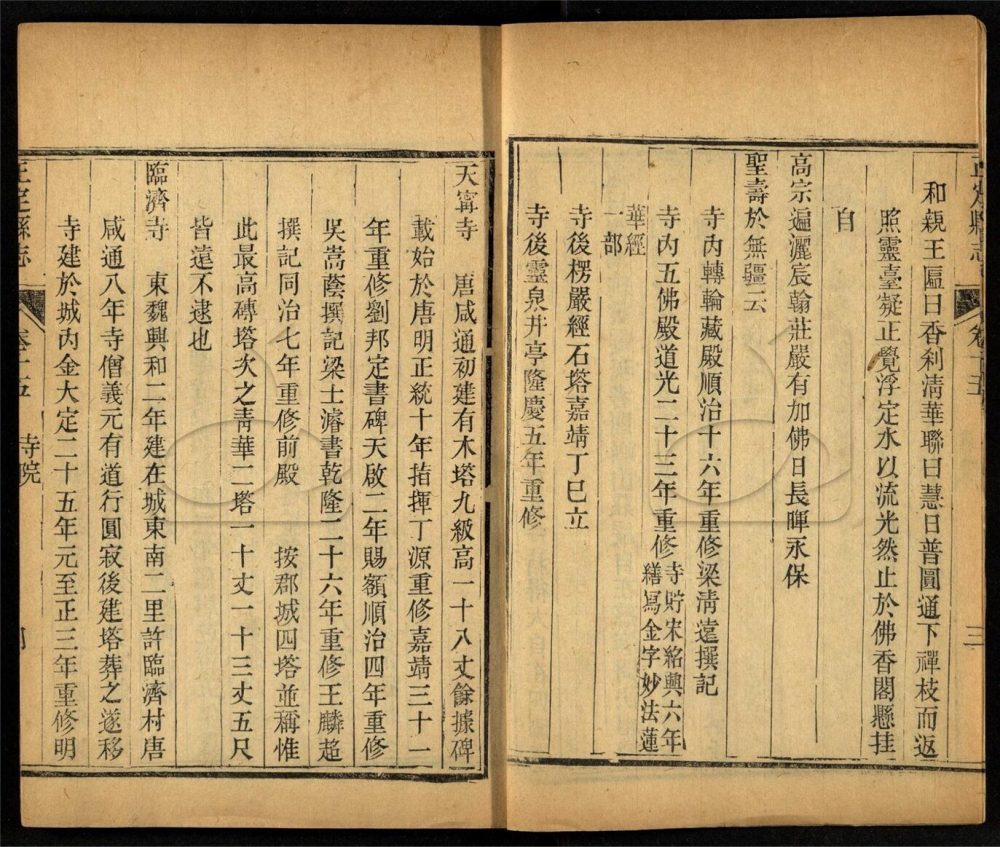 正定縣志 卷十五 三
和親王匾曰香刹清華聯曰慧日普圓通下禪枝而返
照靈臺凝止覺浮定水以流光然止於佛香閣懸挂
自
高宗遍灑宸翰莊嚴有加佛日長暉永保
聖壽於無疆云
寺內轉輪藏殿順治十六年重修梁清遠撰記
寺內五佛殿道光二十三年重修寺貯宋紹興六年
繕寫金字妙法蓮
華經
一部
寺後楞嚴經石塔嘉靖丁巳立
寺後靈泉井亭隆慶五年重修
天寗寺 唐咸通初建有木塔九級高一十八丈餘據碑
載始於唐明正統十年指揮丁源重修嘉靖三十一
年重修劉邦定書碑天啟二年賜額順治四年重修
吳嵩蔭撰記梁士濬書乾隆二十六年重修王麟趙
撰記同治七年重修前殿 按郡城四塔並稱惟
此最高磚塔次之青華二塔一十丈一十三丈五尺
皆遠不逮也
臨濟寺 東魏興和二年建在城東南二里許臨濟村唐
咸通八年寺僧義元有道行圓寂後建塔葬之遂移
寺建於城內金大定二十五年元至正三年重修明
正定縣志 卷十五 寺院